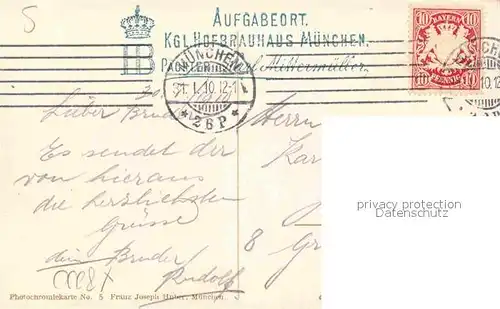 5
AUFGABEORT.
KGL. HOFBRÄUHAUS MÜNCHEN.
HB PÄCHTER Mittermüller.
10 BAYERN 10
10 PFENNIG 10
MÜNCHEN
31. 1. 10. 12-1
* 26 P *
Lieber Bruder
Es sendet dir
von hieraus
die herzlichsten
Grüsse
dein Bruder
Rudolf
Herrn
Kar
8 Gr
privacy protection
Datenschutz
Photochromiekarte No. 5 Franz Joseph Huber, München.